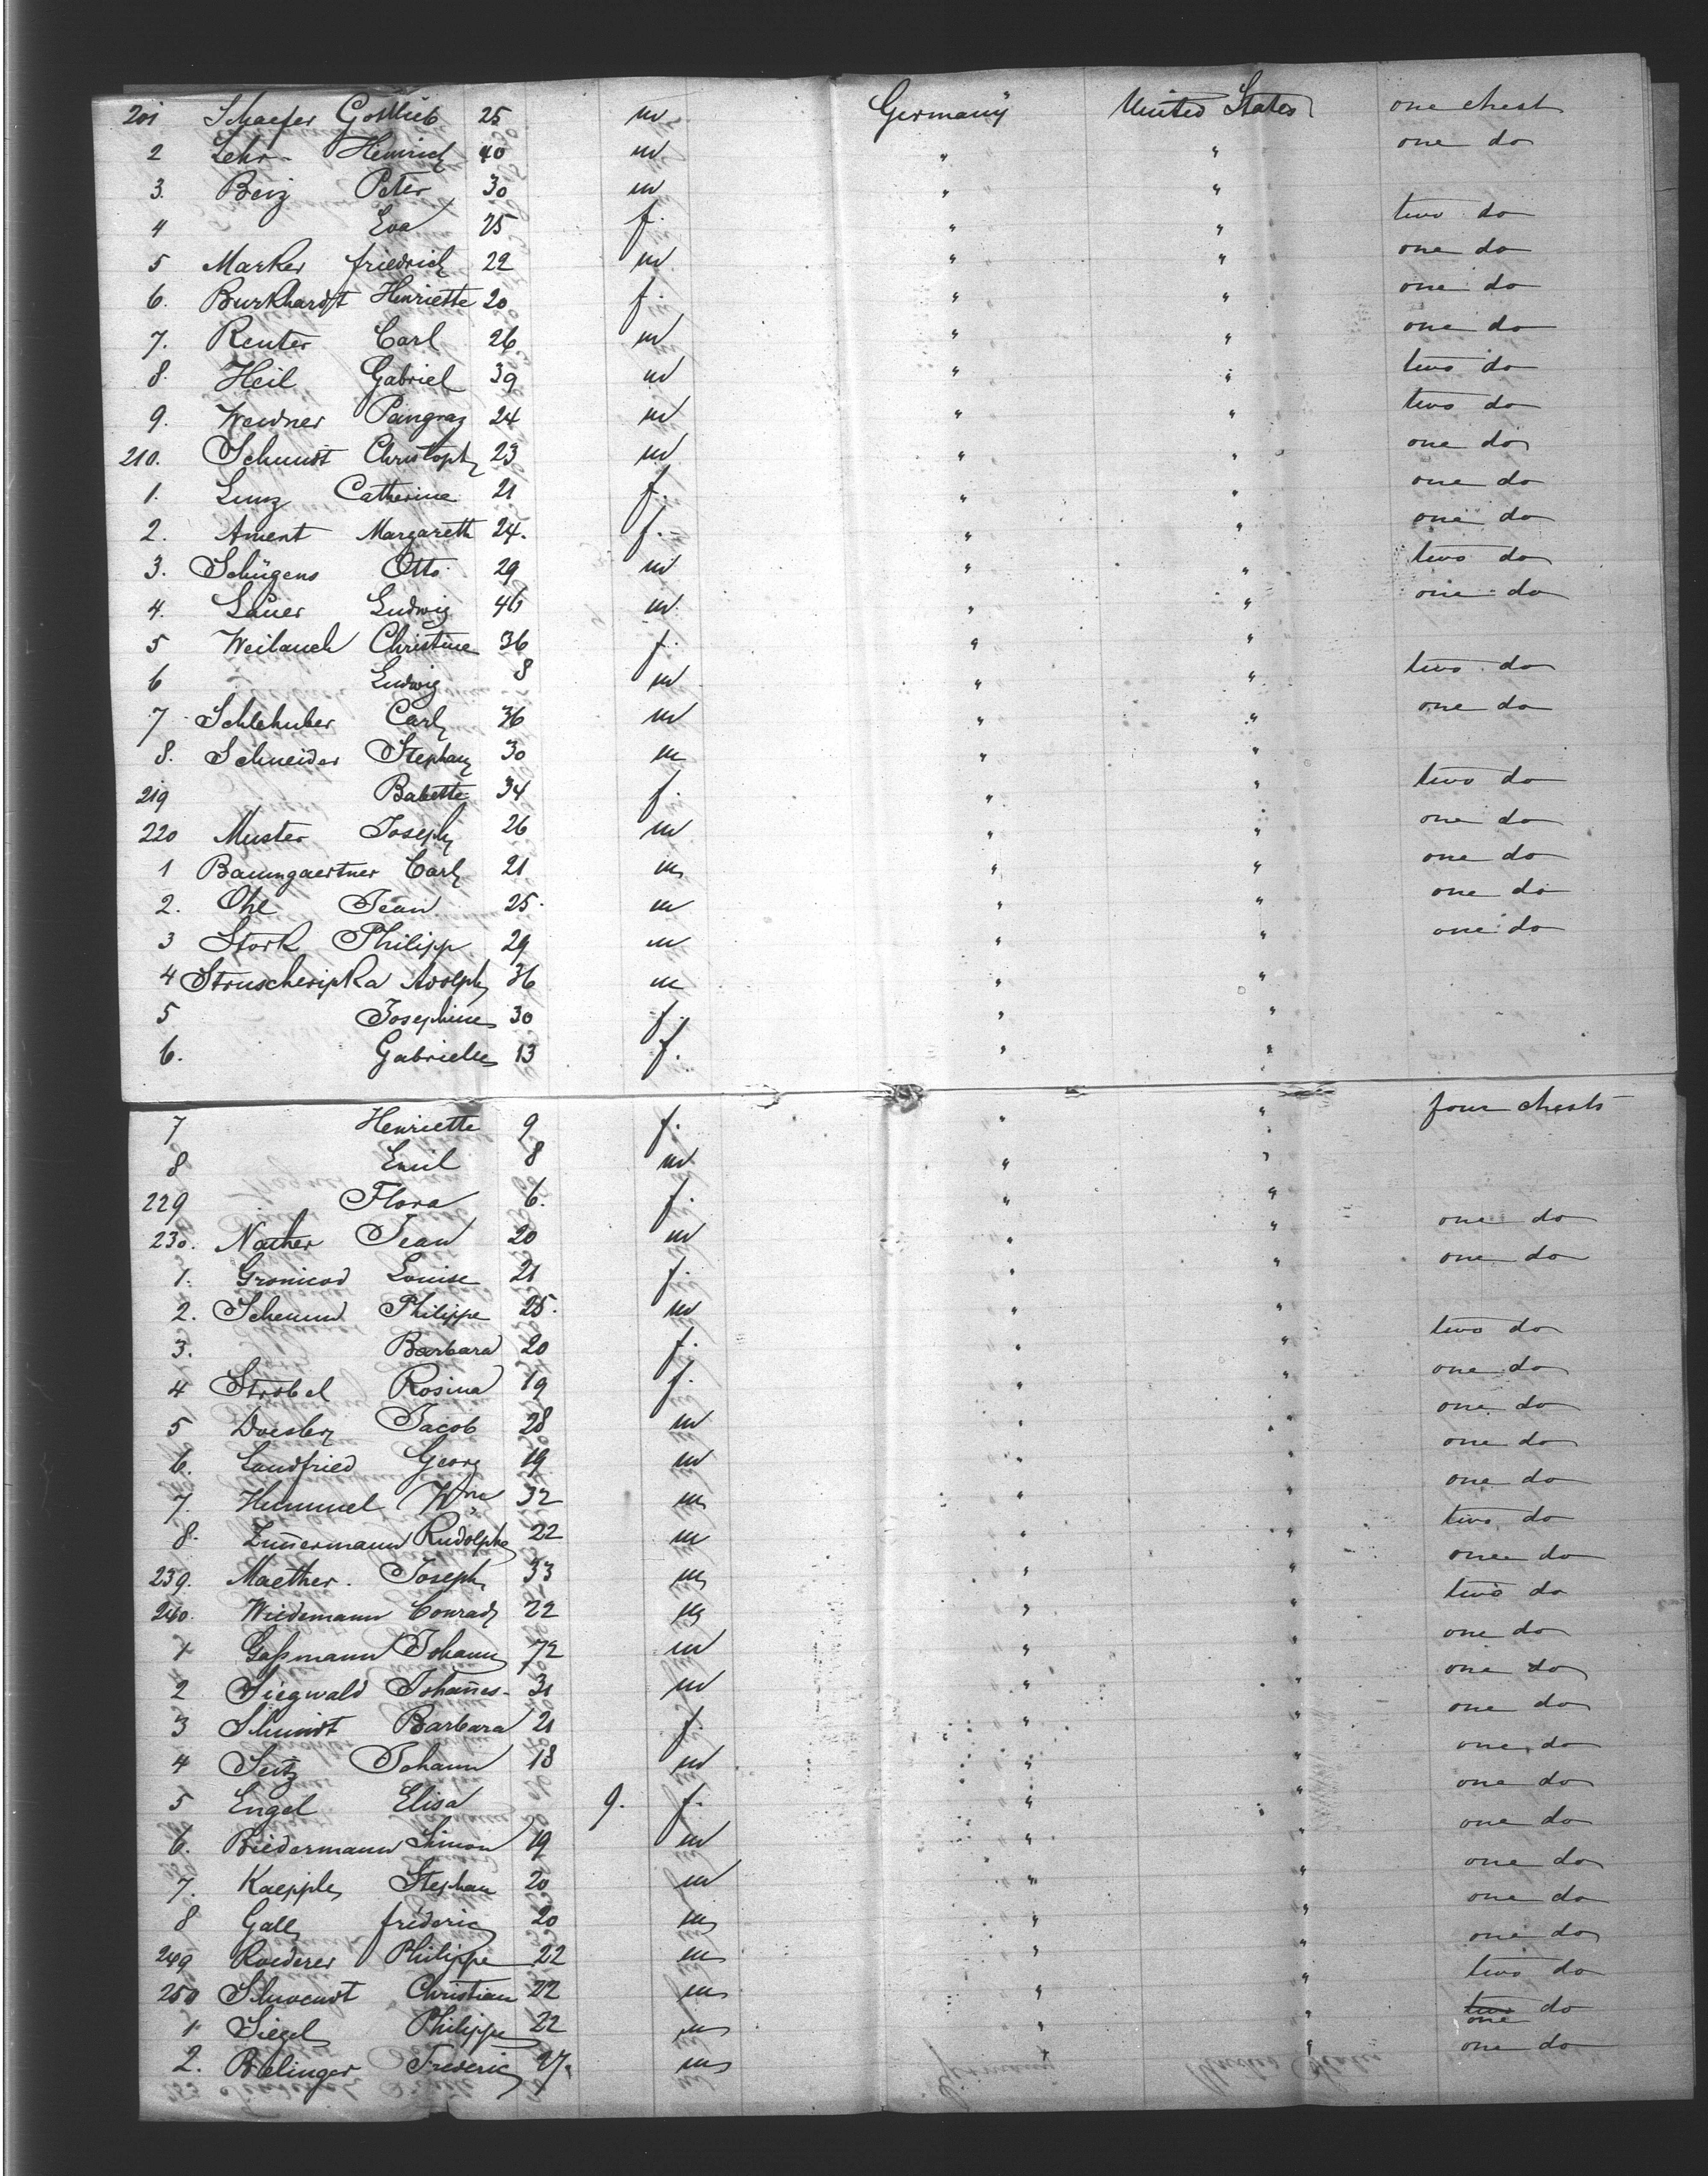 201 Schaefer Gottlieb 25 m Germany United States one chest
2 Lehr Heinrich 40 m " " one do
3. Beiz Peter 30 m " "
4 Eva 25 f. " " two do
5 Marker friedrich 22 m " " one do
6. Burkhardt Henriette 20 f. " " one do
7. Reuter Carl 26 m " " one do
8. Heil Gabriel 39 m " " two do
9. Weidner Pangraz 24 m " " two do
210. Schmidt Christoph 23 m " " one do
1. Lunz Catherine 21 f. " " one do
2. Ament Margareth 24. f. " " one do
3. Schügens Otto 29 m " " two do
4. Lauer Ludwig 46 m " " one do
5 Weilauch Christine 36 f. " "
6 Ludwig 8 m " " two do
7 Schlehuber Carl 36 m " " one do
8. Schneider Stephan 30 m " "
219 Babette 34 f. " " two do
220 Muster Joseph 26 m " " one do
1 Baumgaertner Carl 21 m " " one do
2. Ohl Jean 25. m " " one do
3 Stork Philipp 29 m " " one do
4 StruscheripKa Adolph 36 m " "
5 Josephine 30 f. " "
6. Gabrielle 13 f. " "
7 Henriette 9 f. " " four chests
8 Emil 8 m " "
229 Flora 6. f. " "
230. Nather Jean 20 m " " one do
1. Louise 21 f. " " one do
2. Philippe 25. m " "
3. Barbara 20 f. " " two do
4 Strobel Rosina 19 f. " " one do
5 Jacob 28 m " " one do
6. Landfried Georg 19 m " " one do
7. Hummel Wm 32 m " " one do
8. Zim̄ermann Rudolph 22 m " " two do
239. Maether. Joseph 33 m " " one do
240. Wiedemann Conrad 22 m " " two do
1 Gaßmann Johann 72 m " " one do
2 Siegwald Johan̄es 31 m " " one do
3 Schmidt Barbara 21 f. " " one do
4 Seitz Johann 18 m " " one do
5 Engel Elisa 9. f. " " one do
6. Biedermann Simon 19 m " " one do
7. Kaepple Stephan 20 m " " one do
8 Gall frederic 20 m " " one do
249 Roederer Philippe 22 m " " one do
250 Christian 22 m " " two do
1 Siegel Philippe 22 m " " two one do
2. Bolinger Frederic 27. m " " one do